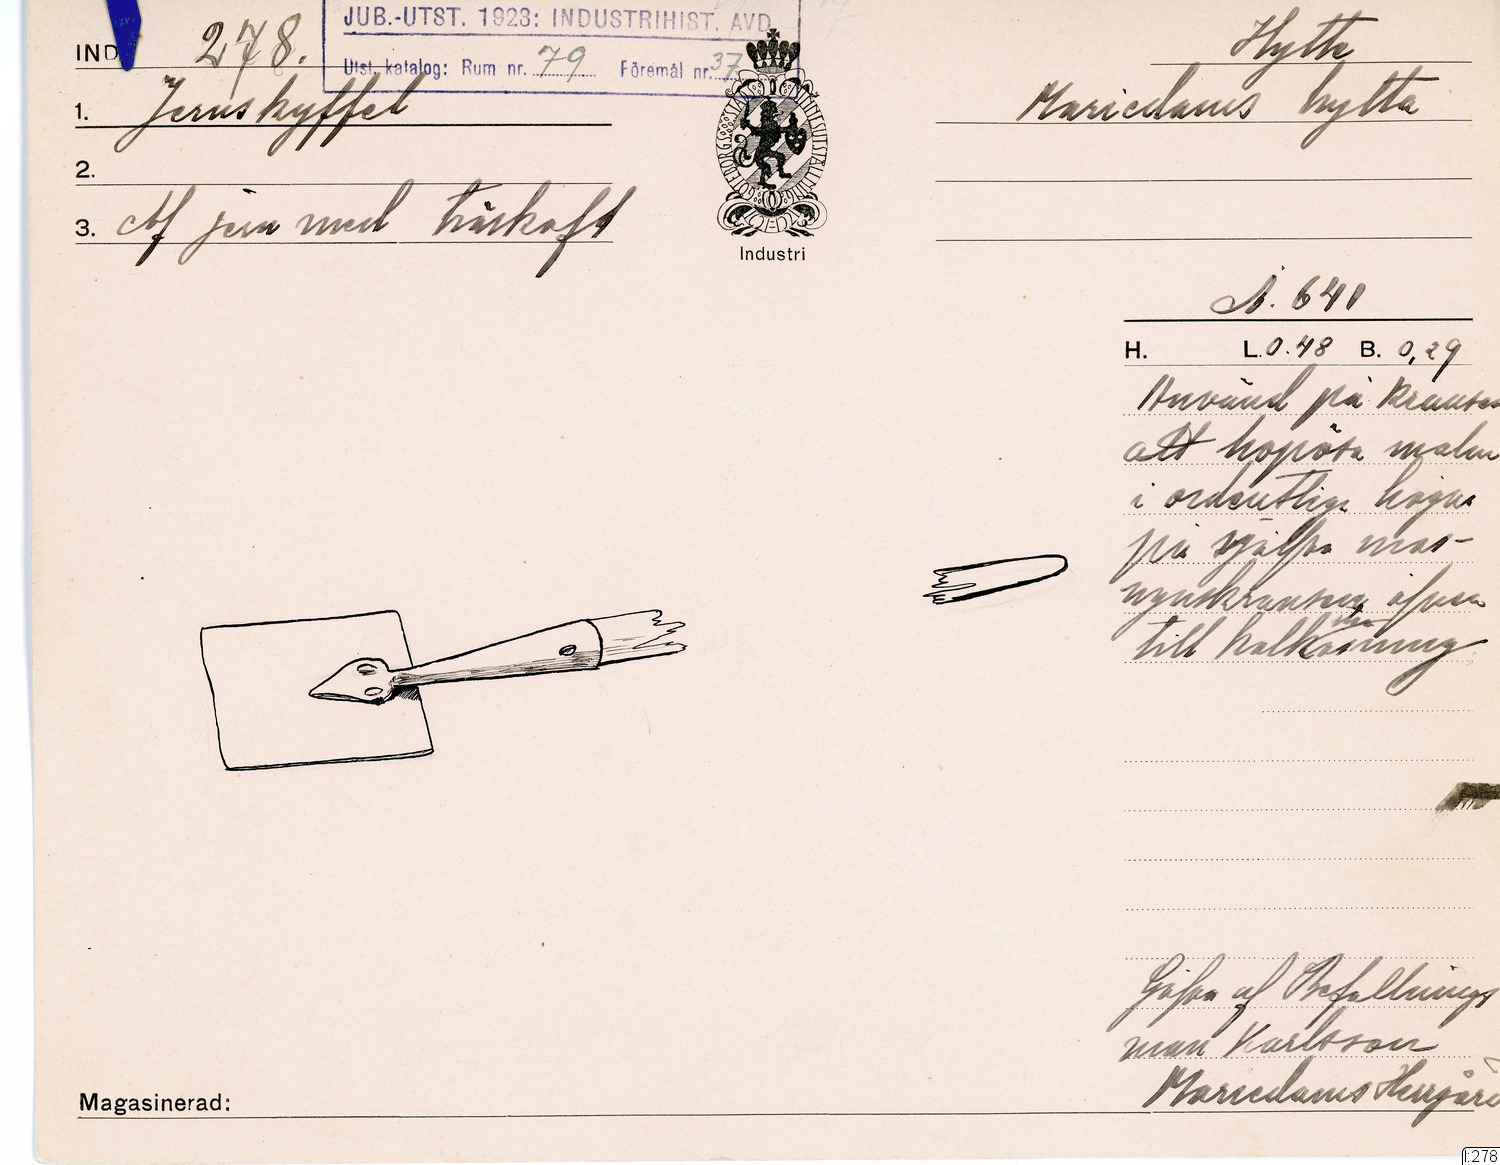 JUB.-UTST. 1923: INDUSTRIHIST. AVD.
Utst. katalog: Rum nr. 79 Föremål nr. 37
IND. 278.
1. Jernskyffel
2.
3. Af jern med träskaft
GÖTEBORGS STADS MINNESUTSTÄLLNING
Industri
Hytte
Mariedams hytta
Å. 640
H. L. 0.48 B. 0,29
Använd på Kransen
att hopösa malm
i ordentliga högar
på själfva mas-
ugnskransen äfven
till kalk
Gåfva af Befallnings
man Karlsson
Mariedams Herrgård
Magasinerad:
I:278